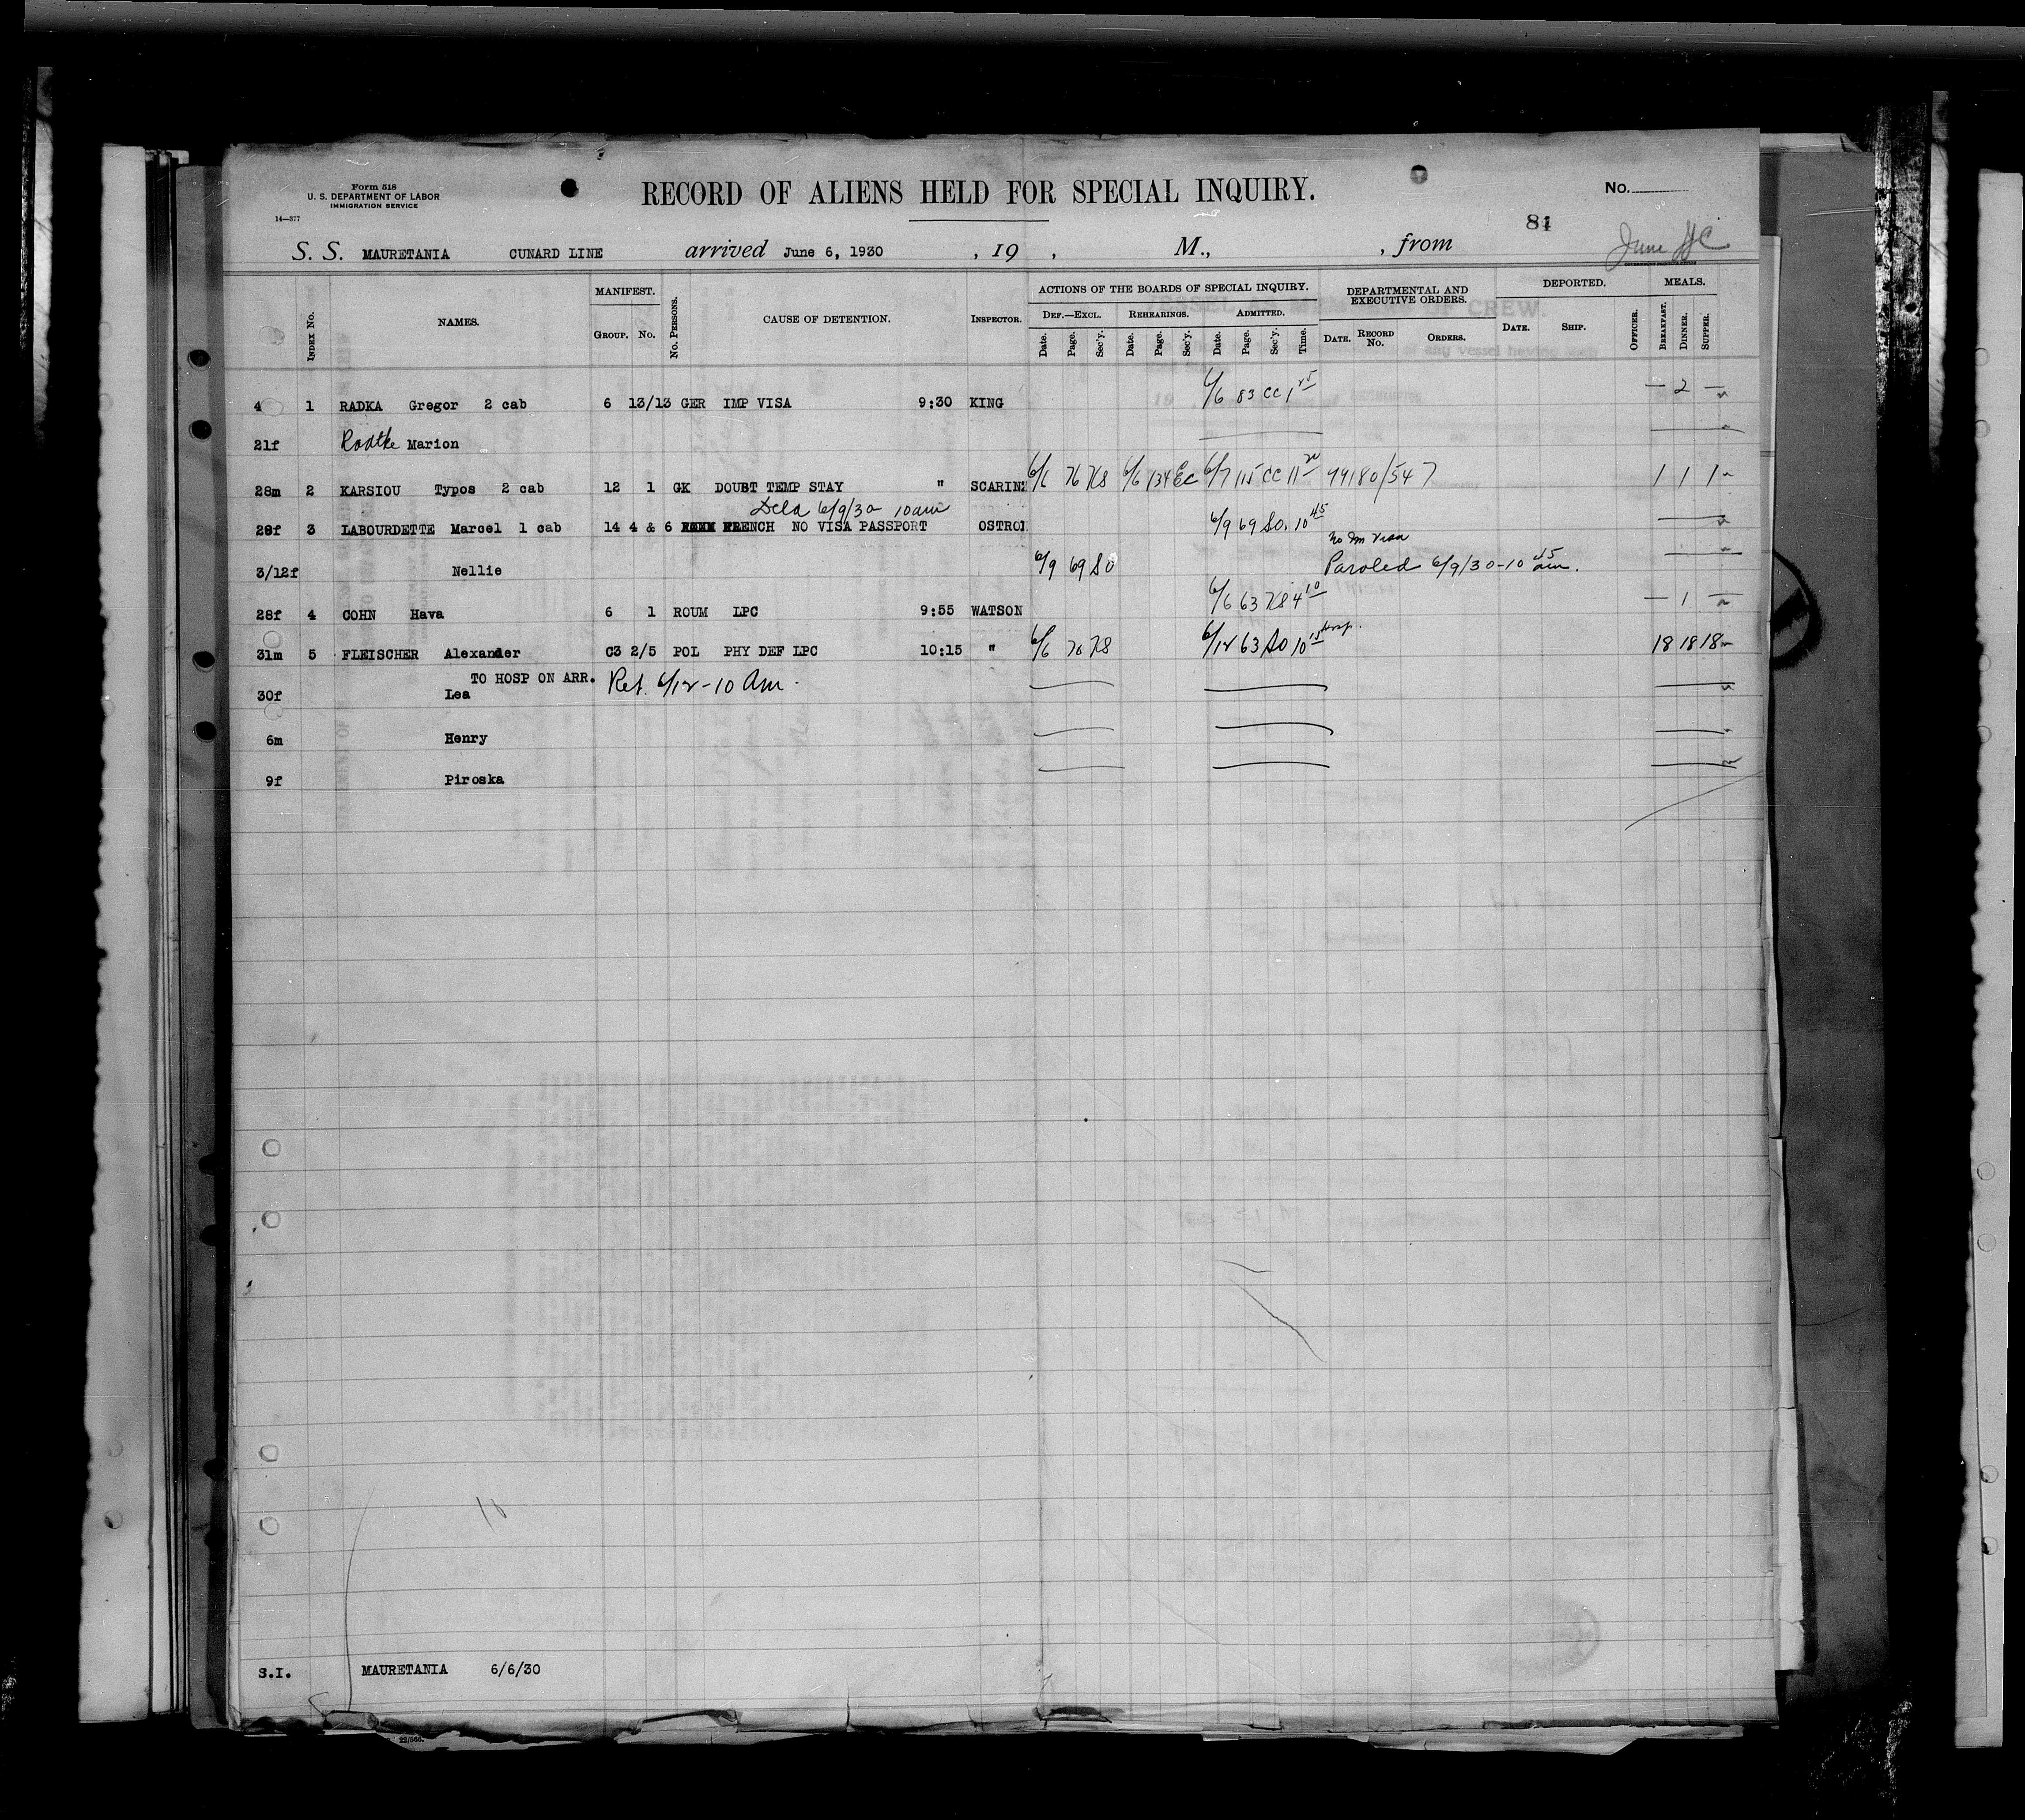 Form 518
U. S. DEPARTMENT OF LABOR
IMMIGRATION SERVICE
14—377
RECORD OF ALIENS HELD FOR SPECIAL INQUIRY.
No.
84
S. S. MAURETANIA CUNARD LINE arrived June 6, 1930 , 19 , M., , from
June
INDEX No. NAMES. MANIFEST. GROUP. No. No. PERSONS. CAUSE OF DETENTION. INSPECTOR. ACTIONS OF THE BOARDS OF SPECIAL INQUIRY. DEF.—EXCL. Date. Page. Sec'y. REHEARINGS. Date. Page. Sec'y. ADMITTED. Date. Page. Sec'y. Time. DEPARTMENTAL AND EXECUTIVE ORDERS. DATE. RECORD No. ORDERS. DEPORTED. DATE. SHIP. OFFICER. MEALS. BREAKFAST. DINNER. SUPPER.
4 1 RADKA Gregor 2 cab 6 13/13 GER IMP VISA 9:30 KING 6/6 83 CC 1 25 — 2 —
21f Radtke Marion
28m 2 KARSIOU Typos 2 cab 12 1 GK DOUBT TEMP STAY " SCARINZ 6/6 76 KS 6/6 134 EC 6/7 115 CC 11 20 99180/547 1 1 1
Deld 6/9/30 10am
28f 3 LABOURDETTE Marcel 1 cab 14 4 & 6 FRENCH NO VISA PASSPORT OSTROI 6/9 69 SO. 10 45
No Im Visa
3/12f Nellie 6/9 69 SO Paroled 6/9/30-10 45 am.
28f 4 COHN Hava 6 1 ROUM LPC 9:55 WATSON 6/6 63 KS 4 10 — 1 —
31m 5 FLEISCHER Alexander C3 2/5 POL PHY DEF LPC 10:15 " 6/6 76 KS 6/12 63 SO 10 15 hosp. 18 18 18
TO HOSP ON ARR. Ret. 6/12-10 Am.
30f Lea
6m Henry
9f Piroska
S.I. MAURETANIA 6/6/30
22/566.